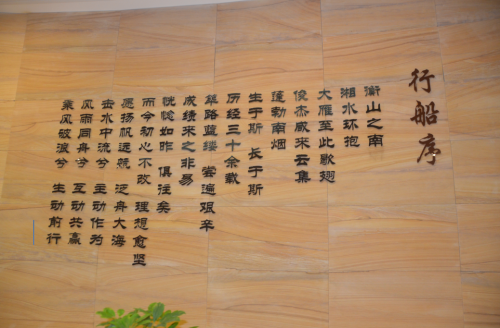 行船序
衡山之南
湘水环抱
大雁至此歇翅
俊杰咸来云集
蓬勃南烟
生于斯 长于斯
历经三十余载
筚路蓝缕 尝遍艰辛
成绩来之非易
恍惚如昨 俱往矣
而今初心不改 理想愈坚
愿扬帆远兢 泛舟大海
击水中流兮 主动作为
风雨同舟兮 互动共赢
乘风破浪兮 生动前行